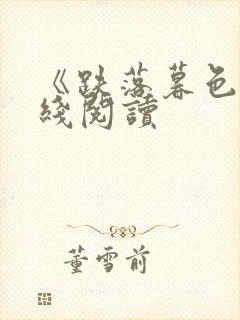 《跌落暮色
綫閱讀
董雪前